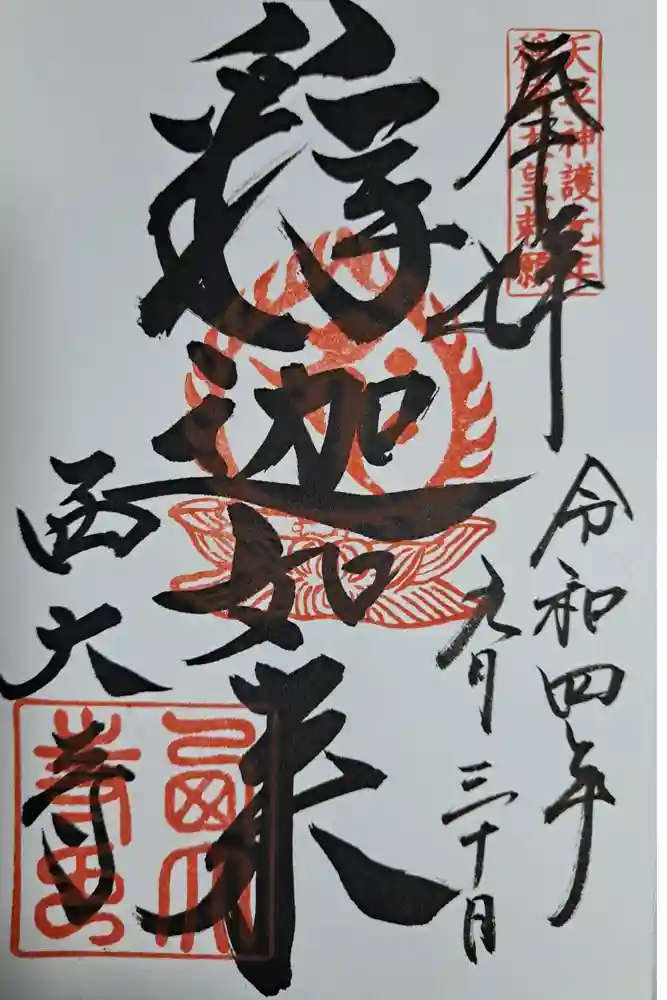 天平神護元年
稱德天皇勅願
奉拝
令和四年
九月三十日
釋迦如来
西大寺